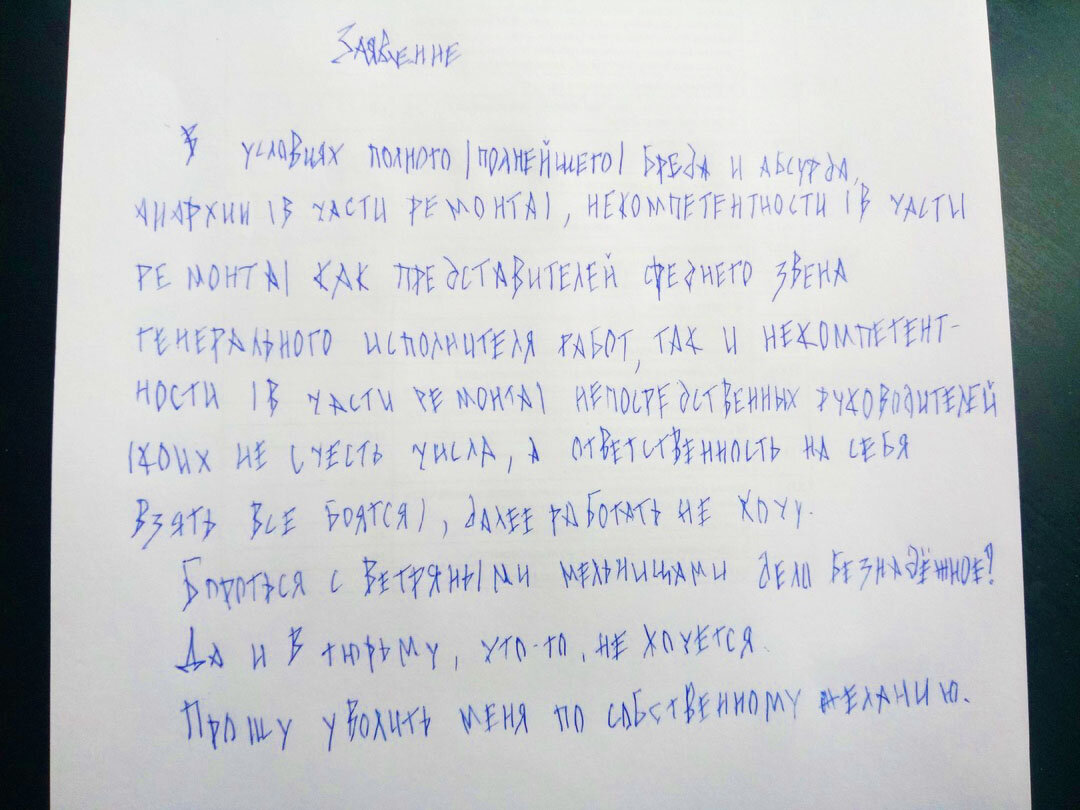 Заявление
В условиях полного /полнейшего/ бреда и абсурда,
анархии /в части ремонта/, некомпетентности /в части
ремонта/ как представителей среднего звена
генерального исполнителя работ, так и некомпетент-
ности /в части ремонта/ непосредственных руководителей
/коих не счесть числа, а ответственность на себя
взять все боятся/, далее работать не хочу.
Бороться с ветряными мельницами дело безнадёжное!
Да и в тюрьму, что-то, не хочется.
Прошу уволить меня по собственному желанию.